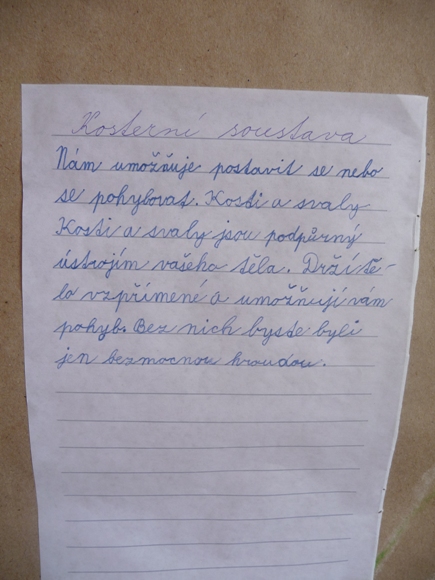 Kosterní soustava
Nám umožňuje postavit se nebo
se pohybovat. Kosti a svaly
Kosti a svaly jsou podpůrný
ústrojím vašeho těla. Drží tě-
lo vzpřímené a umožňují vám
pohyb. Bez nich byste byli
jen bezmocnou hroudou.